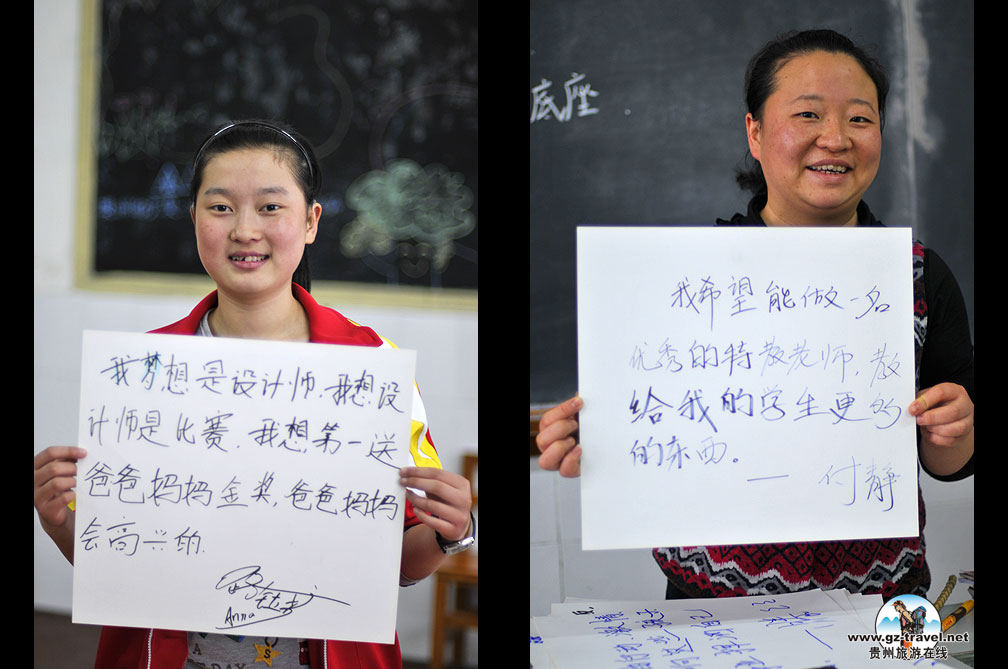 我梦想是设计师.我想设
计师是比赛.我想第一送
爸爸妈妈金奖,爸爸妈妈
会高兴的.
Anna
底座
我希望能做一名
优秀的特教老师,教
给我的学生更多
的东西。
— 付静
www.gz-travel.net
贵州旅游在线